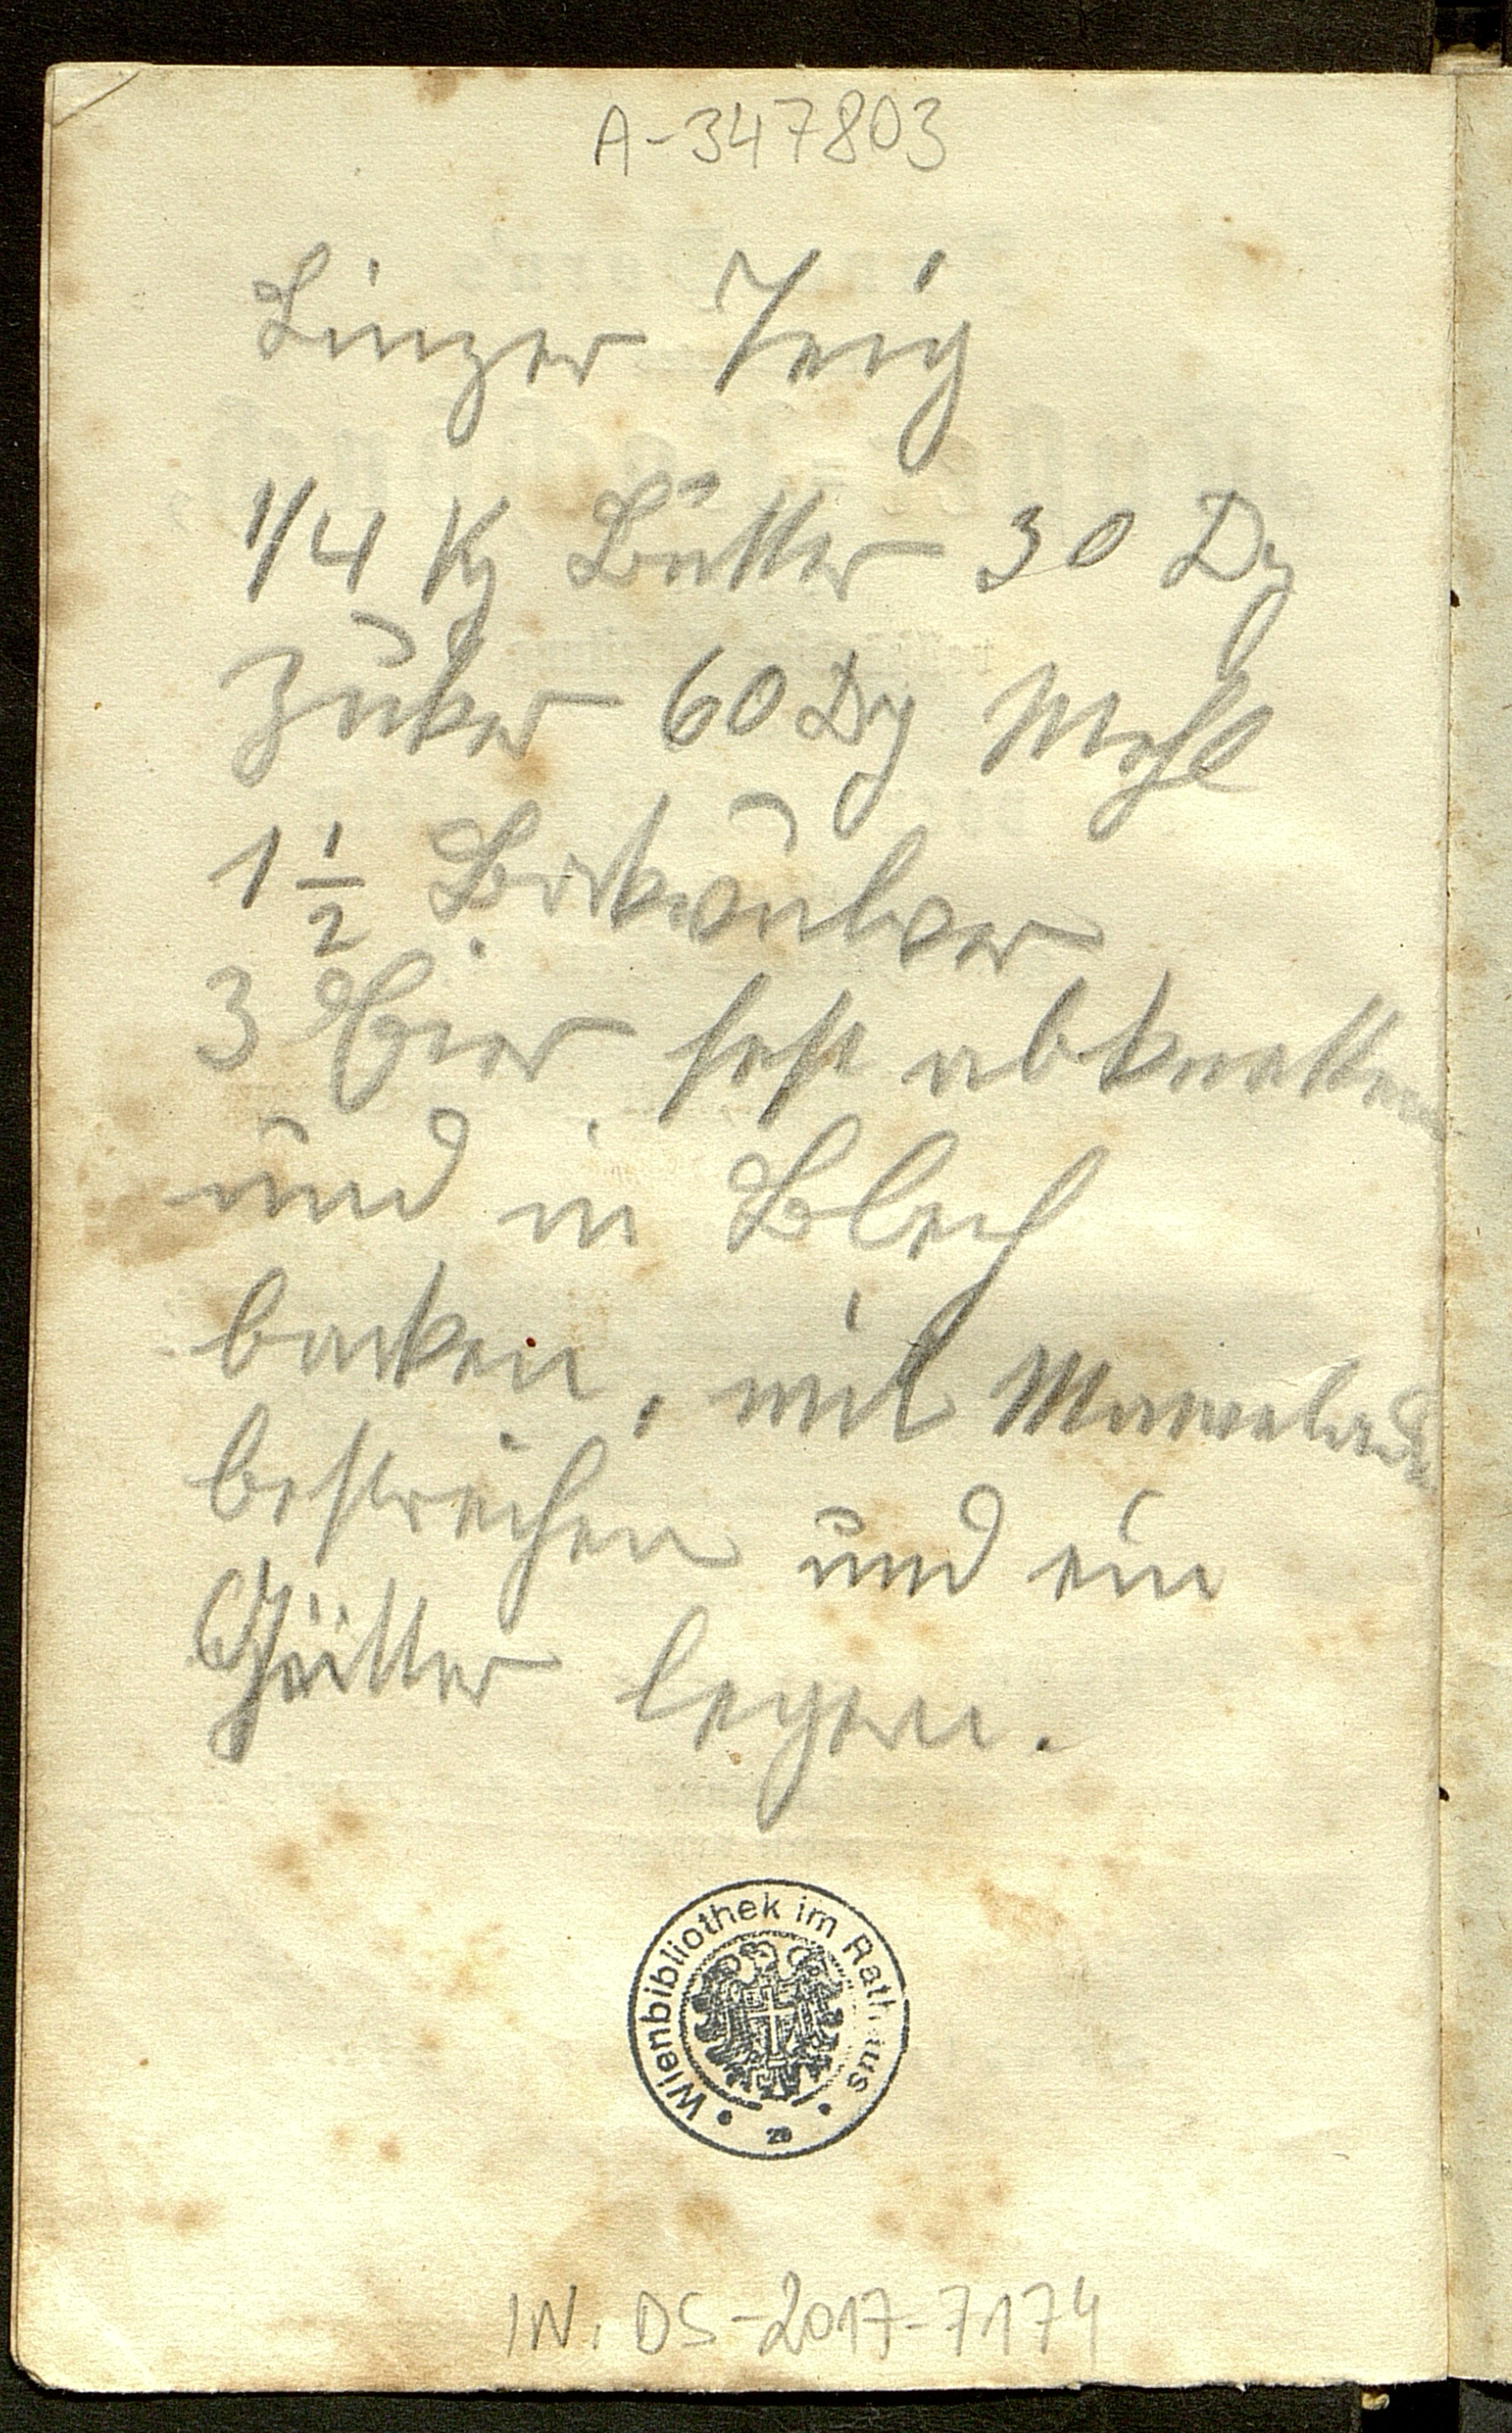 A-347803
Linzer Teig
1/4 Kg Butter 30 Dg
Zuker 60 Dg Mehl
1 1/2 Bakpulver
3 Eier fest abknetten
und in Blech
backen, mit Marmelade
bestreichen und ein
Gitter legen.
Wienbibliothek im Rathaus
28
IN. DS-2017-7174